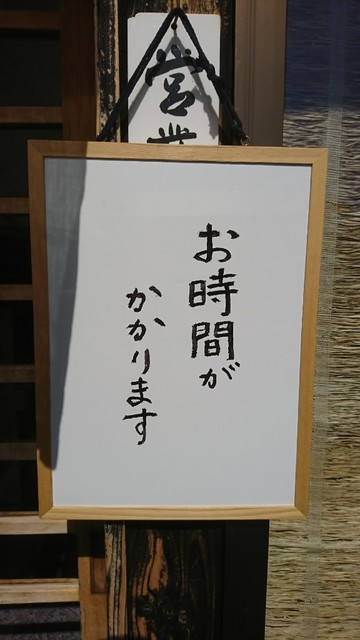 営業
お時間が
かかります